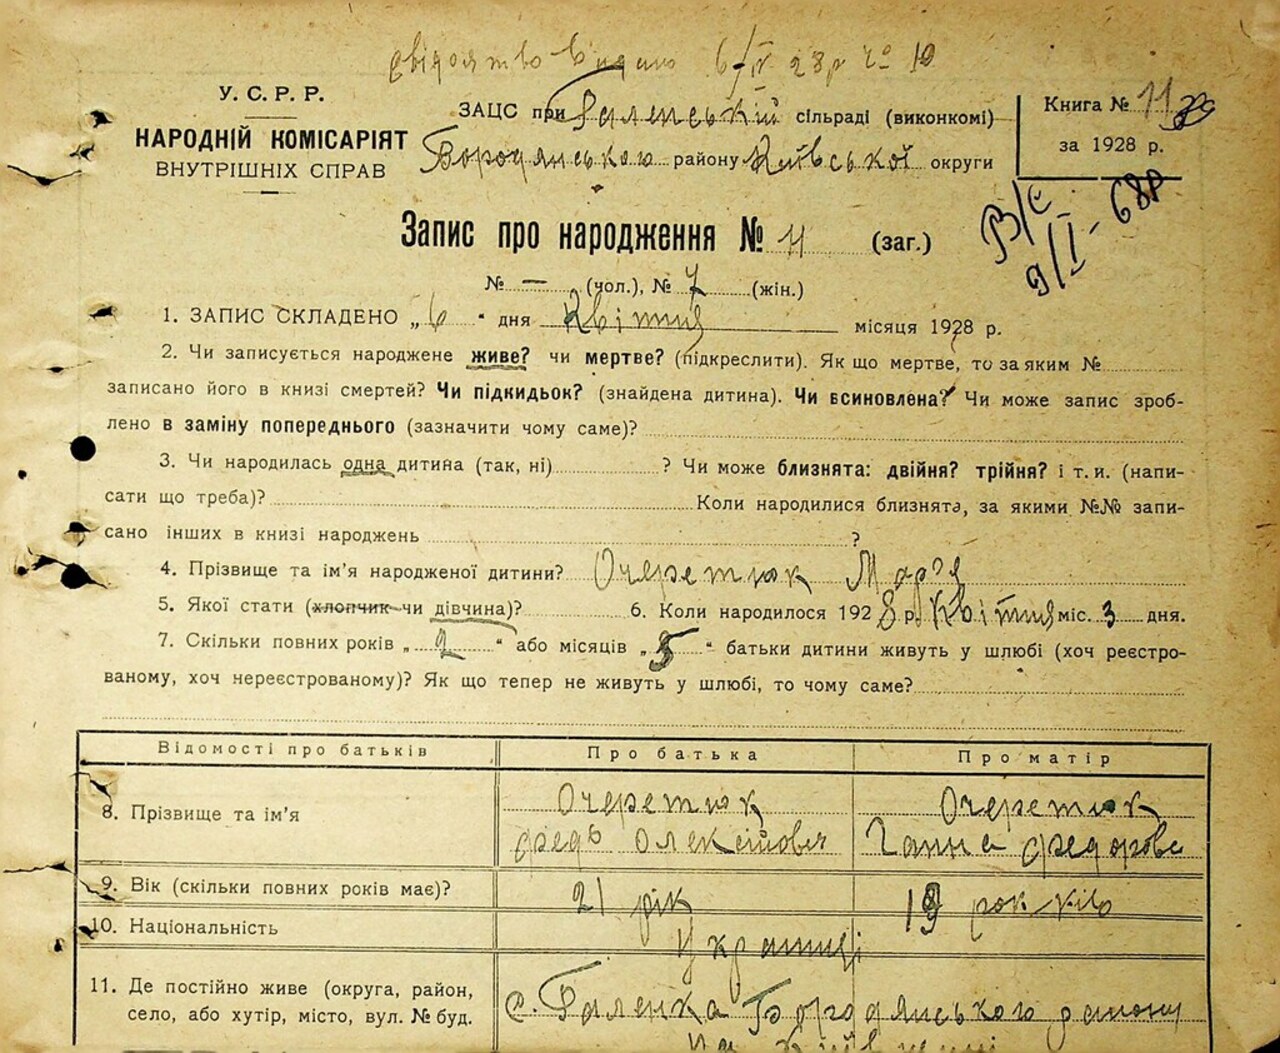 свідоцтво видано 6/IV 28р № 10
У. С. Р. Р.
НАРОДНІЙ КОМІСАРІЯТ
ВНУТРІШНІХ СПРАВ
ЗАЦС при Галенській сільраді (виконкомі)
Бородянського району Київської округи
Книга № 11
за 1928 р.
В/С
9/I-68р
Запис про народження № 11 (заг.)
№ — (чол.), № 7 (жін.)
1. ЗАПИС СКЛАДЕНО „6“ дня Квітня місяця 1928 р.
2. Чи записується народжене живе? чи мертве? (підкреслити). Як що мертве, то за яким №
записано його в книзі смертей? Чи підкидьок? (знайдена дитина). Чи всиновлена? Чи може запис зроб-
лено в заміну попереднього (зазначити чому саме)?
3. Чи народилась одна дитина (так, ні) ? Чи може близнята: двійня? трійня? і т. и. (напи-
сати що треба)? Коли народилися близнята, за якими №№ запи-
сано інших в книзі народжень ?
4. Прізвище та ім’я народженої дитини? Очеретюк Мар’я
5. Якої стати (хлопчик чи дівчина)? 6. Коли народилося 1928 р. Квітня міс. 3 дня.
7. Скільки повних років „2“ або місяців „5“ батьки дитини живуть у шлюбі (хоч реєстро-
ваному, хоч нереєстрованому)? Як що тепер не живуть у шлюбі, то чому саме?
Відомості про батьків Про батька Про матір
8. Прізвище та ім’я Очеретюк Очеретюк
Федь Олексійович Ганна Федорова
9. Вік (скільки повних років має)? 21 рік 19 рок-ків
10. Національність Українці
11. Де постійно живе (округа, район, с. Галенка Бородянського району
село, або хутір, місто, вул. № буд.